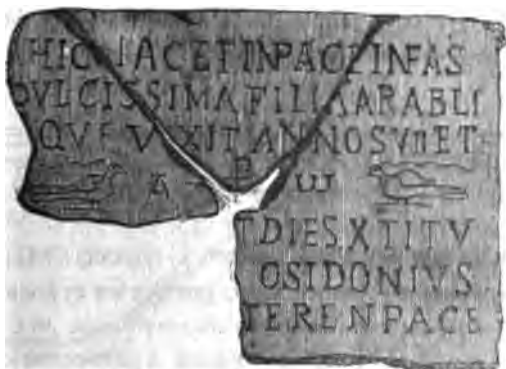 HIC IACET IN PACE INFAS
DVLCISSIMA FILIA ARABLI
QVE VIXIT ANNOS VII ET
A P ω
T DIES X TITV
OSIDONIVS
TER EN PACE